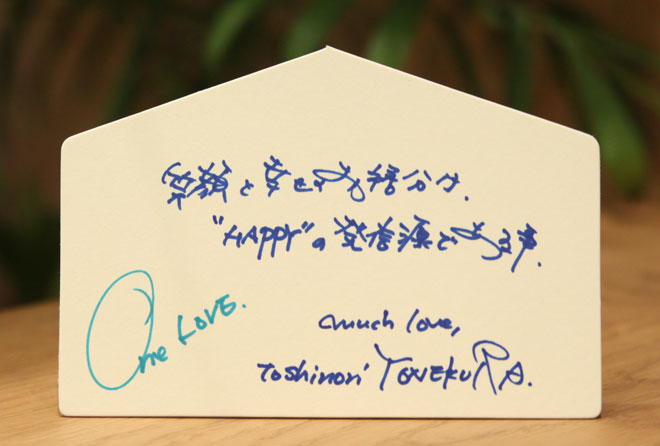 笑顔と幸せのお裾分け.
"HAPPY"の発信源である事.
One LOVE.
much love,
Toshinori YONEKURA.